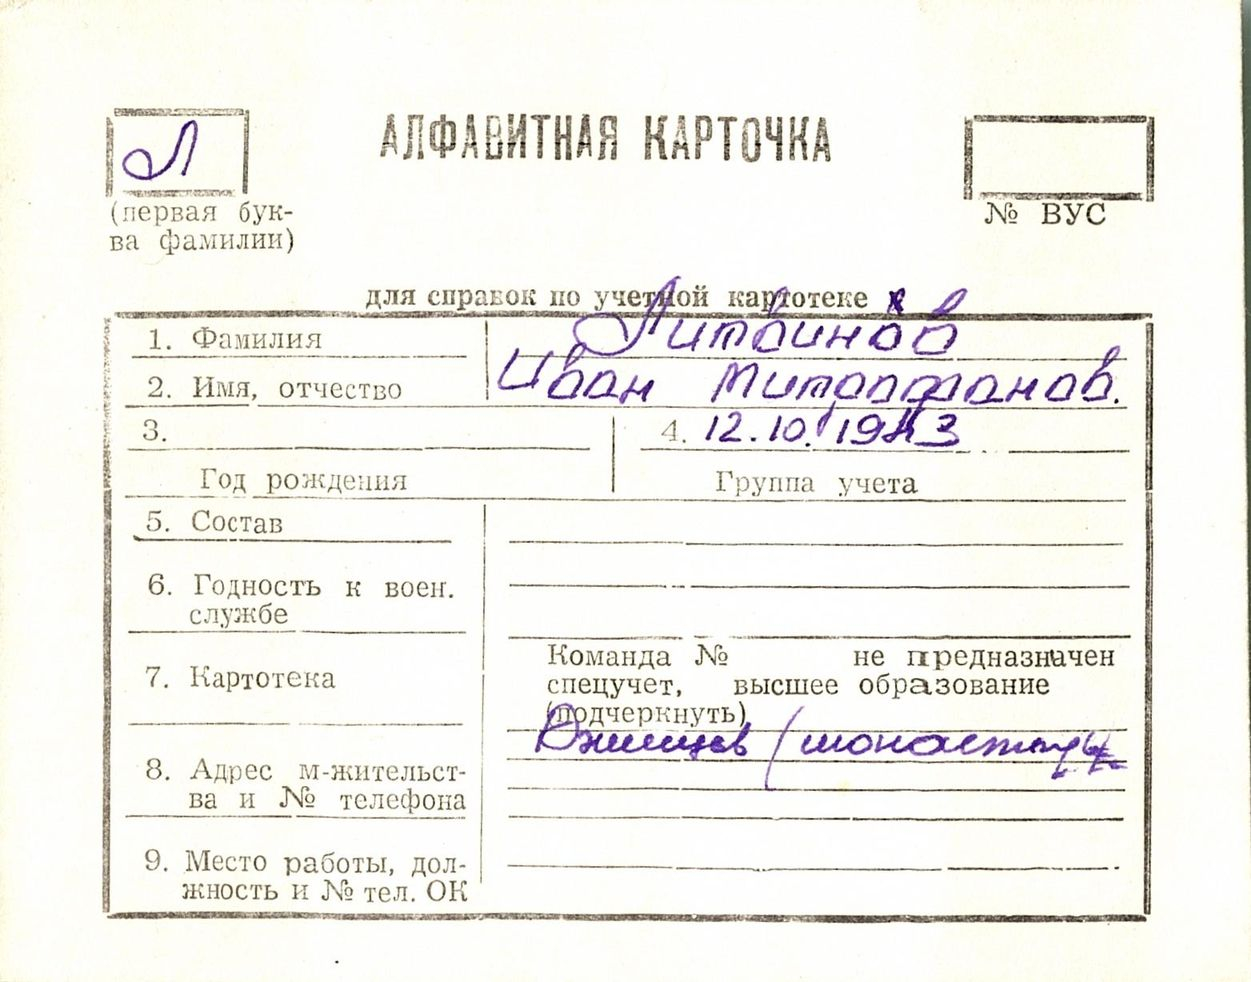 Л
АЛФАВИТНАЯ КАРТОЧКА
(первая бук-
ва фамилии)
№ ВУС
для справок по учетной картотеке
1. Фамилия Литвинов
2. Имя, отчество Иван Митрофанов.
3. 4. 12.10.1943
Год рождения Группа учета
5. Состав
6. Годность к воен.
службе
7. Картотека
Команда № не предназначен
спецучет, высшее образование
(подчеркнуть)
Ржищев (монастырь
8. Адрес м-жительст-
ва и № телефона
9. Место работы, дол-
жность и № тел. ОК